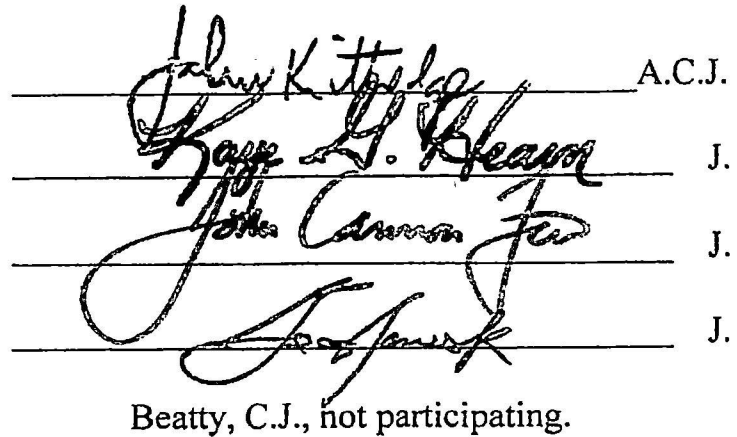 John Kittredge A.C.J.
Kaye G. Hearn J.
John Cannon Few J.
J.
Beatty, C.J., not participating.